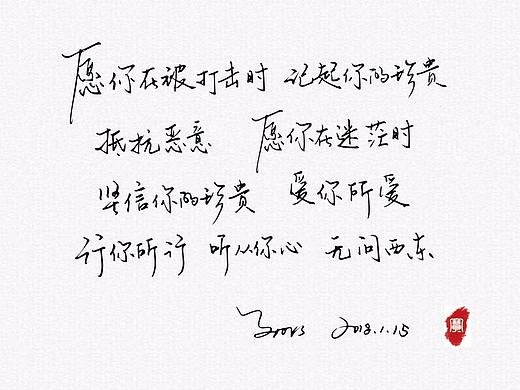 愿你在被打击时 记起你的珍贵
抵抗恶意 愿你在迷茫时
坚信你的珍贵 爱你所爱
行你所行 听从你心 无问西东
2018.1.15